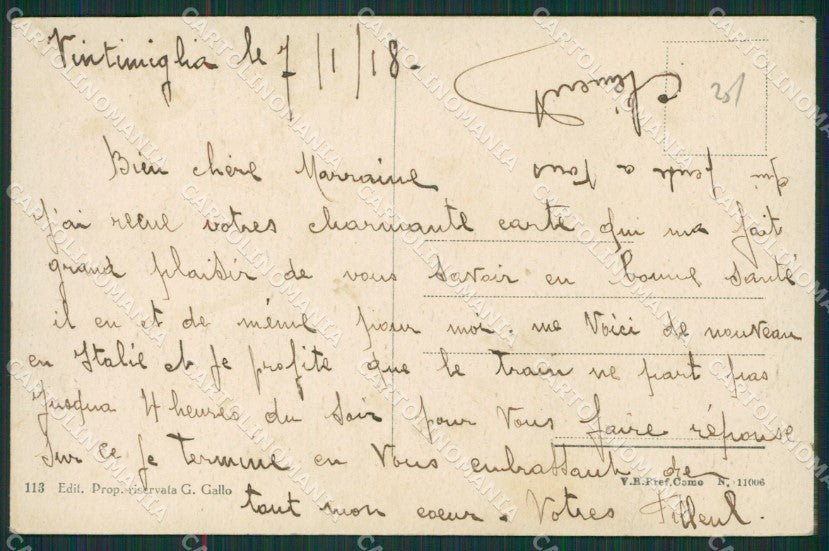 Vintimiglia le 7/1/18.
Bien chère Marraine
J'ai recue votres charmante carte qui ma fait
grand plaisir de vous savoir en bonne santé
il en et de même pour moi. me Voici de nouveau
en Italie et je profite que le train ne part pas
Jusqua 4 heures du soir pour Vous faire réponse
Sur ce je termine en Vous embrassant de
tout mon coeur. Votres Filleul.
qui pense a Vous
Clément
201
113 Edit. Prop. riservata G. Gallo
V.R.Pref.Como N. 11006
CARTOLINOMANIA